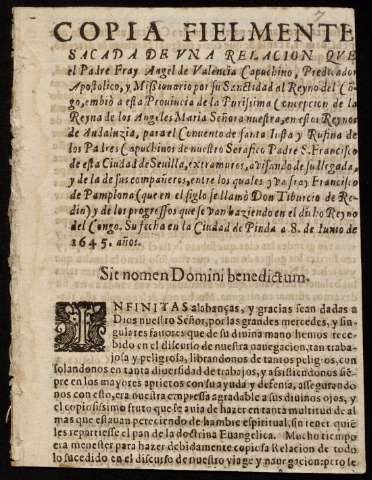 7
COPIA FIELMENTE
SACADA DE VNA RELACION QVE
el Padre Fray Angel de Valencia Capuchino, Predicador
Apostolico, y Missionario por su Sanctidad al Reyno del Cõ-
go, embiò a esta Prouincia de la Purissima Concepcion de la
Reyna de los Angeles Maria Señora nuestra, en estos Reynos
de Andaluzia, para el Conuento de santa Iusta y Rufina de
los Padres Capuchinos de nuestro Serafico Padre S. Francisco
de esta Ciudad de Seuilla, extramuros, auisando de su llegada,
y de la de sus compañeros, entre los quales yva fray Francisco
de Pamplona (que en el siglo se llamò Don Tiburcio de Re-
din) y de los progressos que se van haziendo en el dicho Reyno
del Congo. Su fecha en la Ciudad de Pinda a 8. de Iunio de
1645. años.
Sit nomen Domini benedictum.
INFINITAS alabanças, y gracias sean dadas a
Dios nuestro Señor, por las grandes mercedes, y sin-
gulares fauores que de su diuina mano hemos rece-
bido en el discurso de nuestra nauegacion, tan traba-
josa y peligrosa, librandonos de tantos peligros, con
solandonos en tanta diuersidad de trabajos, y assistiendonos siẽ-
pre en los mayores aprietos con su ayuda y defensa, assegurando
nos con esto, era nuestra empressa agradable a sus diuinos ojos, y
el copiosissimo fruto que se auia de hazer en tanta multitud de al
mas que estauan pereciendo de hambre espiritual, sin tener quiẽ
les repartiesse el pan de la doctrina Euangelica. Mucho tiempo
era menester para hazer debidamente copiosa Relacion de todo
lo sucedido en el discurso de nuestro viage y nauegacion; pero se